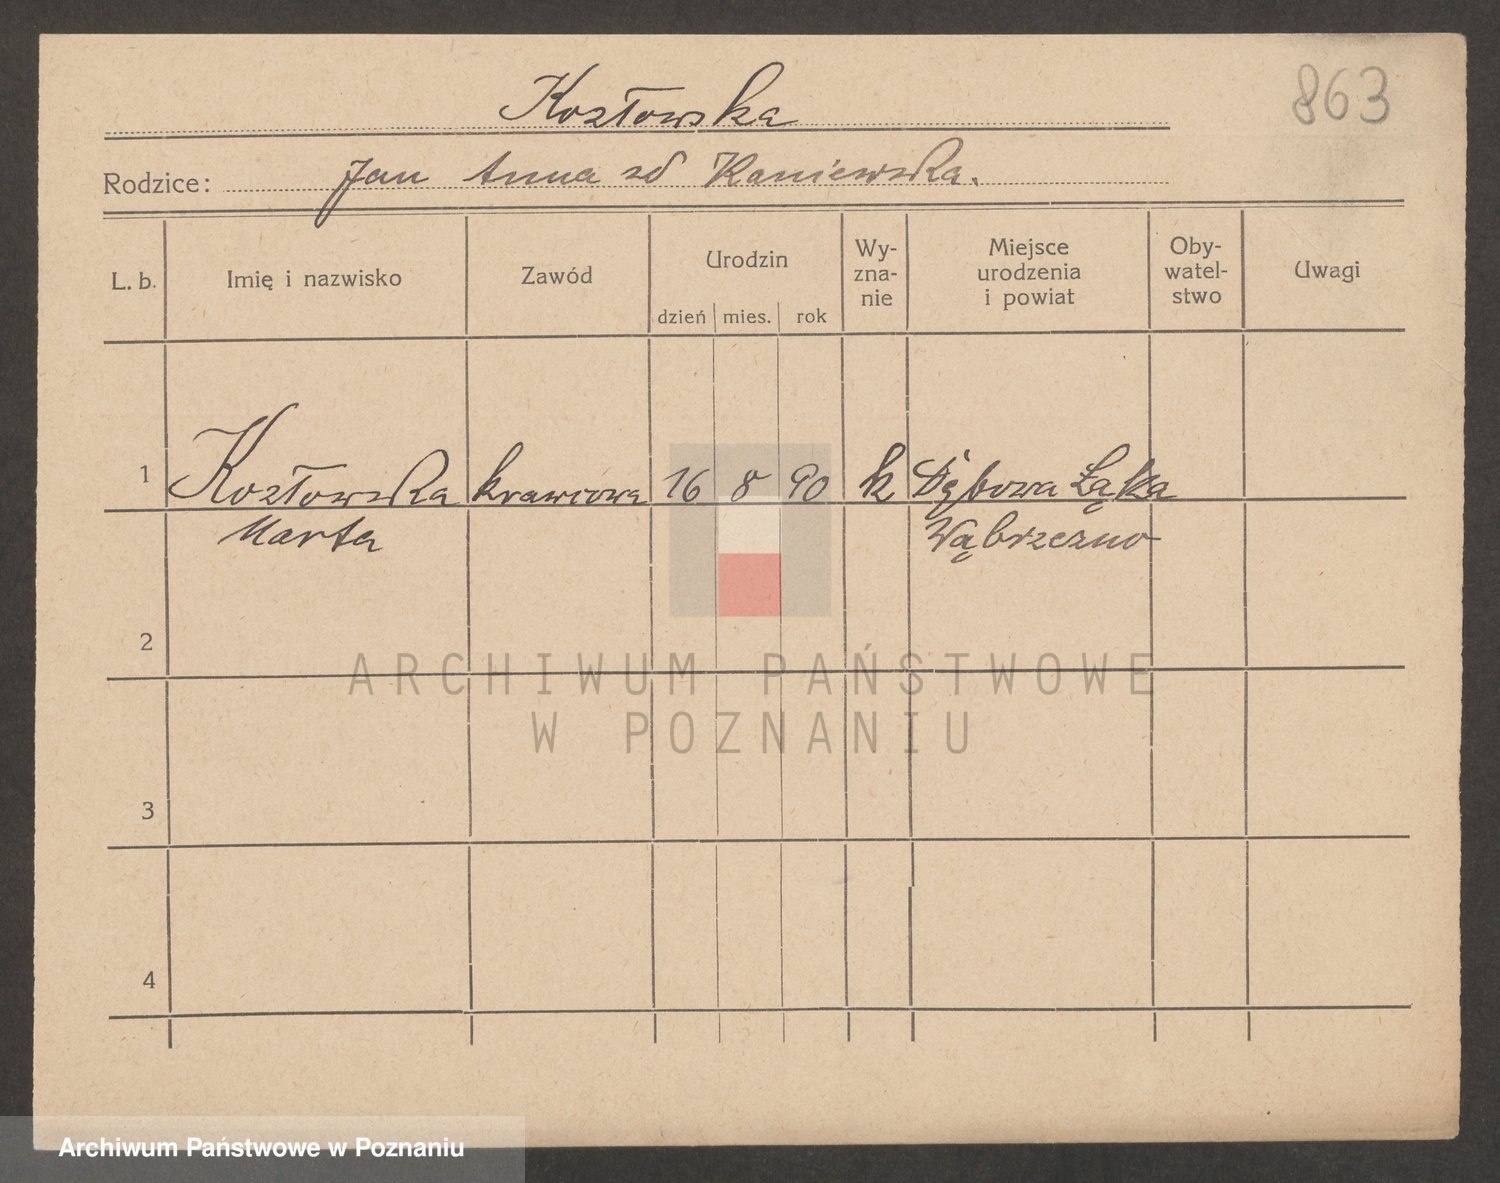 Kozłowska
863
Rodzice: Jan Anna zd Kaniewska.
L. b. Imię i nazwisko Zawód Urodzin dzień mies. rok Wy-zna-nie Miejsce urodzenia i powiat Oby-watel-stwo Uwagi
1 Kozłowska krawcowa 16 8 90 k Dębowa Łąka
Marta Wąbrzezno
2
3
4
ARCHIWUM PAŃSTWOWE
W POZNANIU
Archiwum Państwowe w Poznaniu